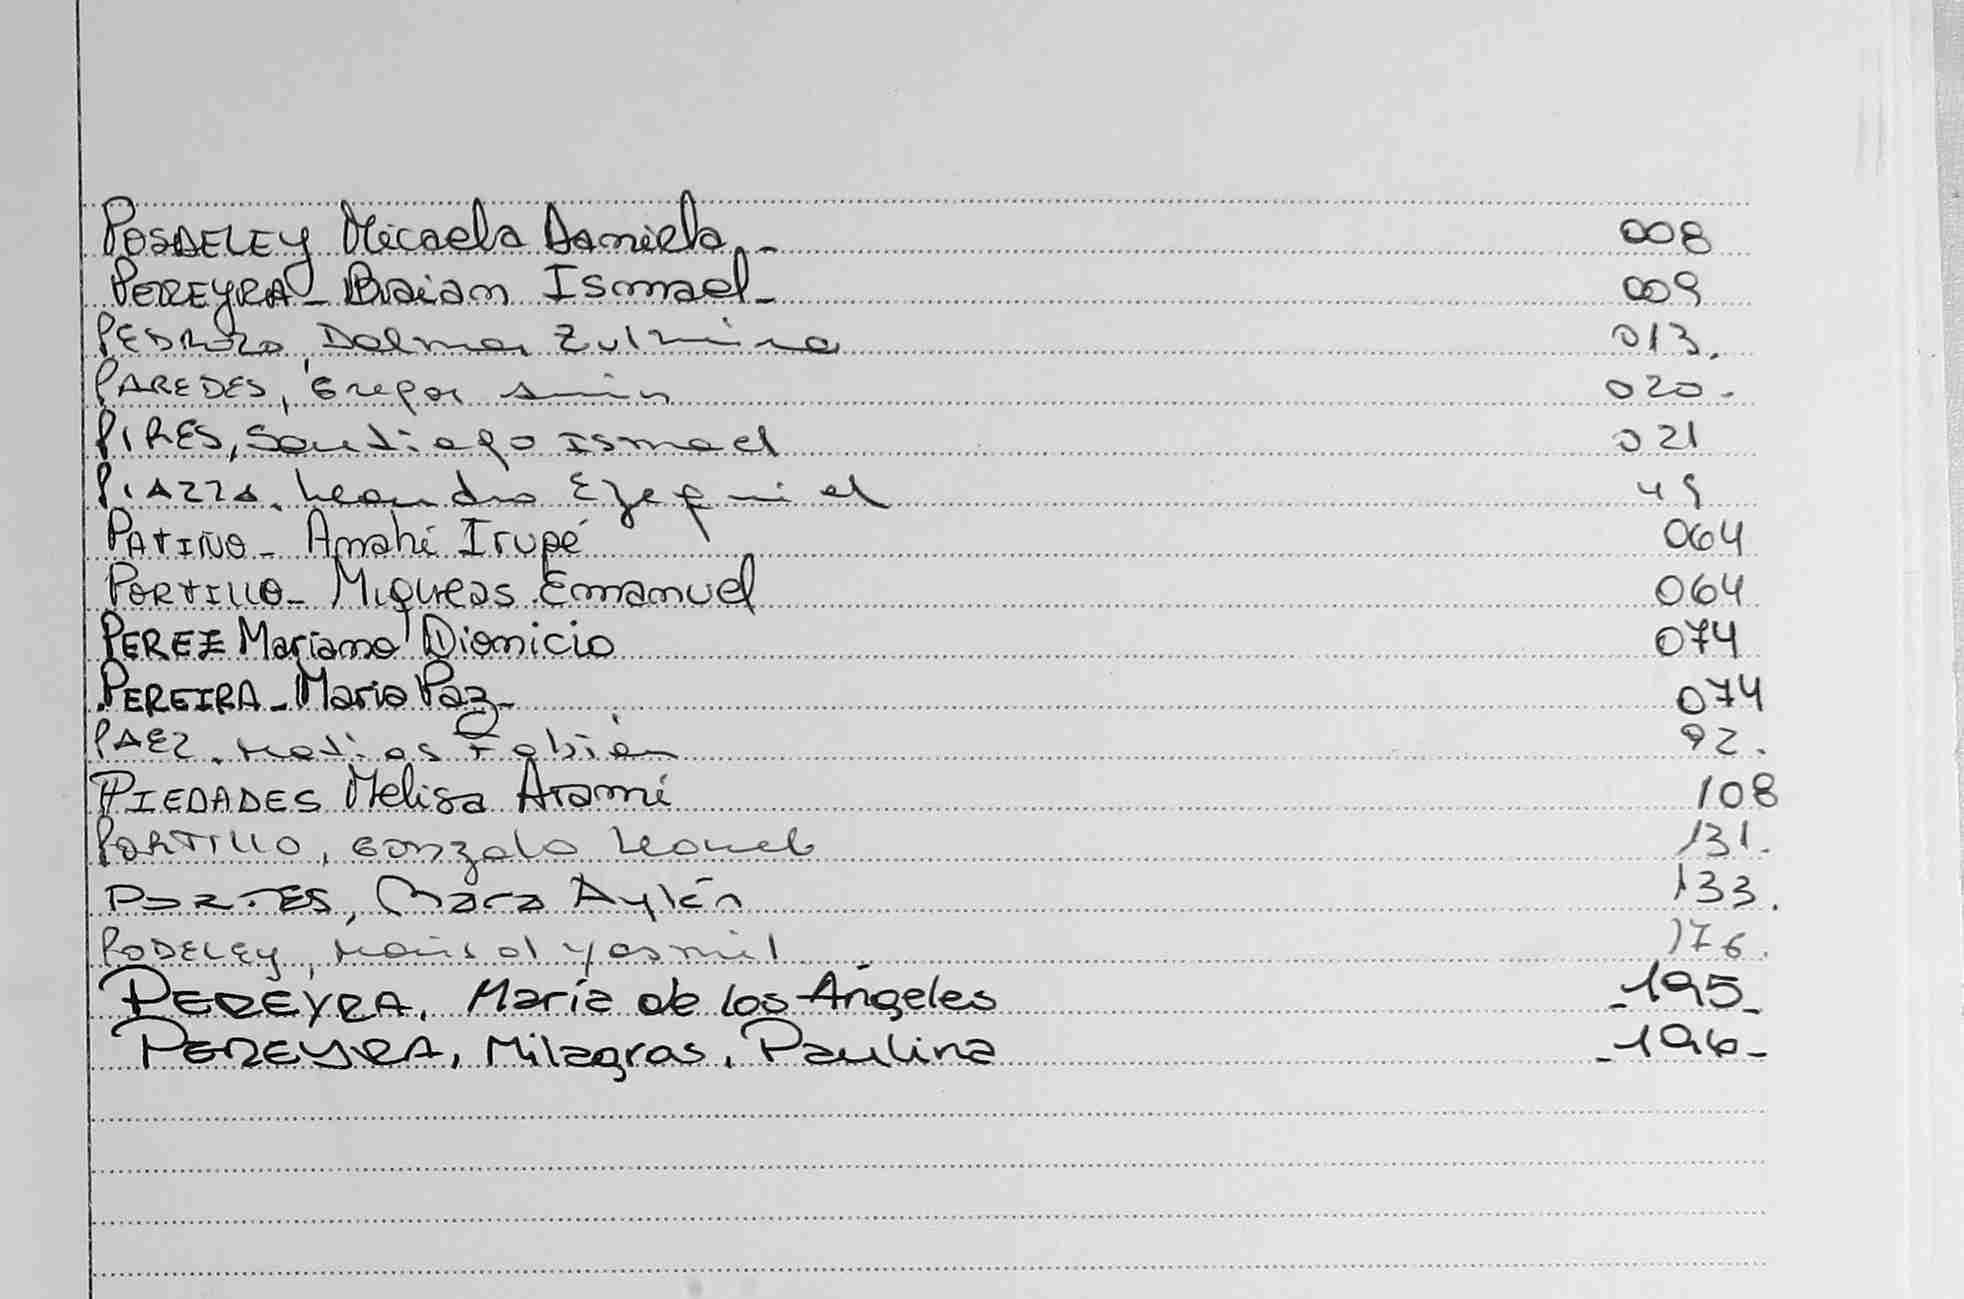 POSDELEY Micaela Daniela.- 008
PEREYRA - Braian Ismael - 009
PEDROZO, Dalma Zulmira 013.
PAREDES, 020.
PIRES, Santiago Ismael 021
PIAZZA, Leandro Ezequiel 49
PATIÑO - Anahí Irupé 064
PORTILLO - Miqueas Emanuel 064
PEREZ Mariano Dionicio 074
PEREIRA - Maria Paz - 074
PAEZ, Matias Fabián 92.
PIEDADES Melisa Aramí 108
PORTILLO, Gonzalo Leonel 131.
Mara Aylén 133.
PODELEY, Marisol 176.
PEREYRA, María de los Ángeles -195-
PEREYRA, Milagras, Paulina -196-